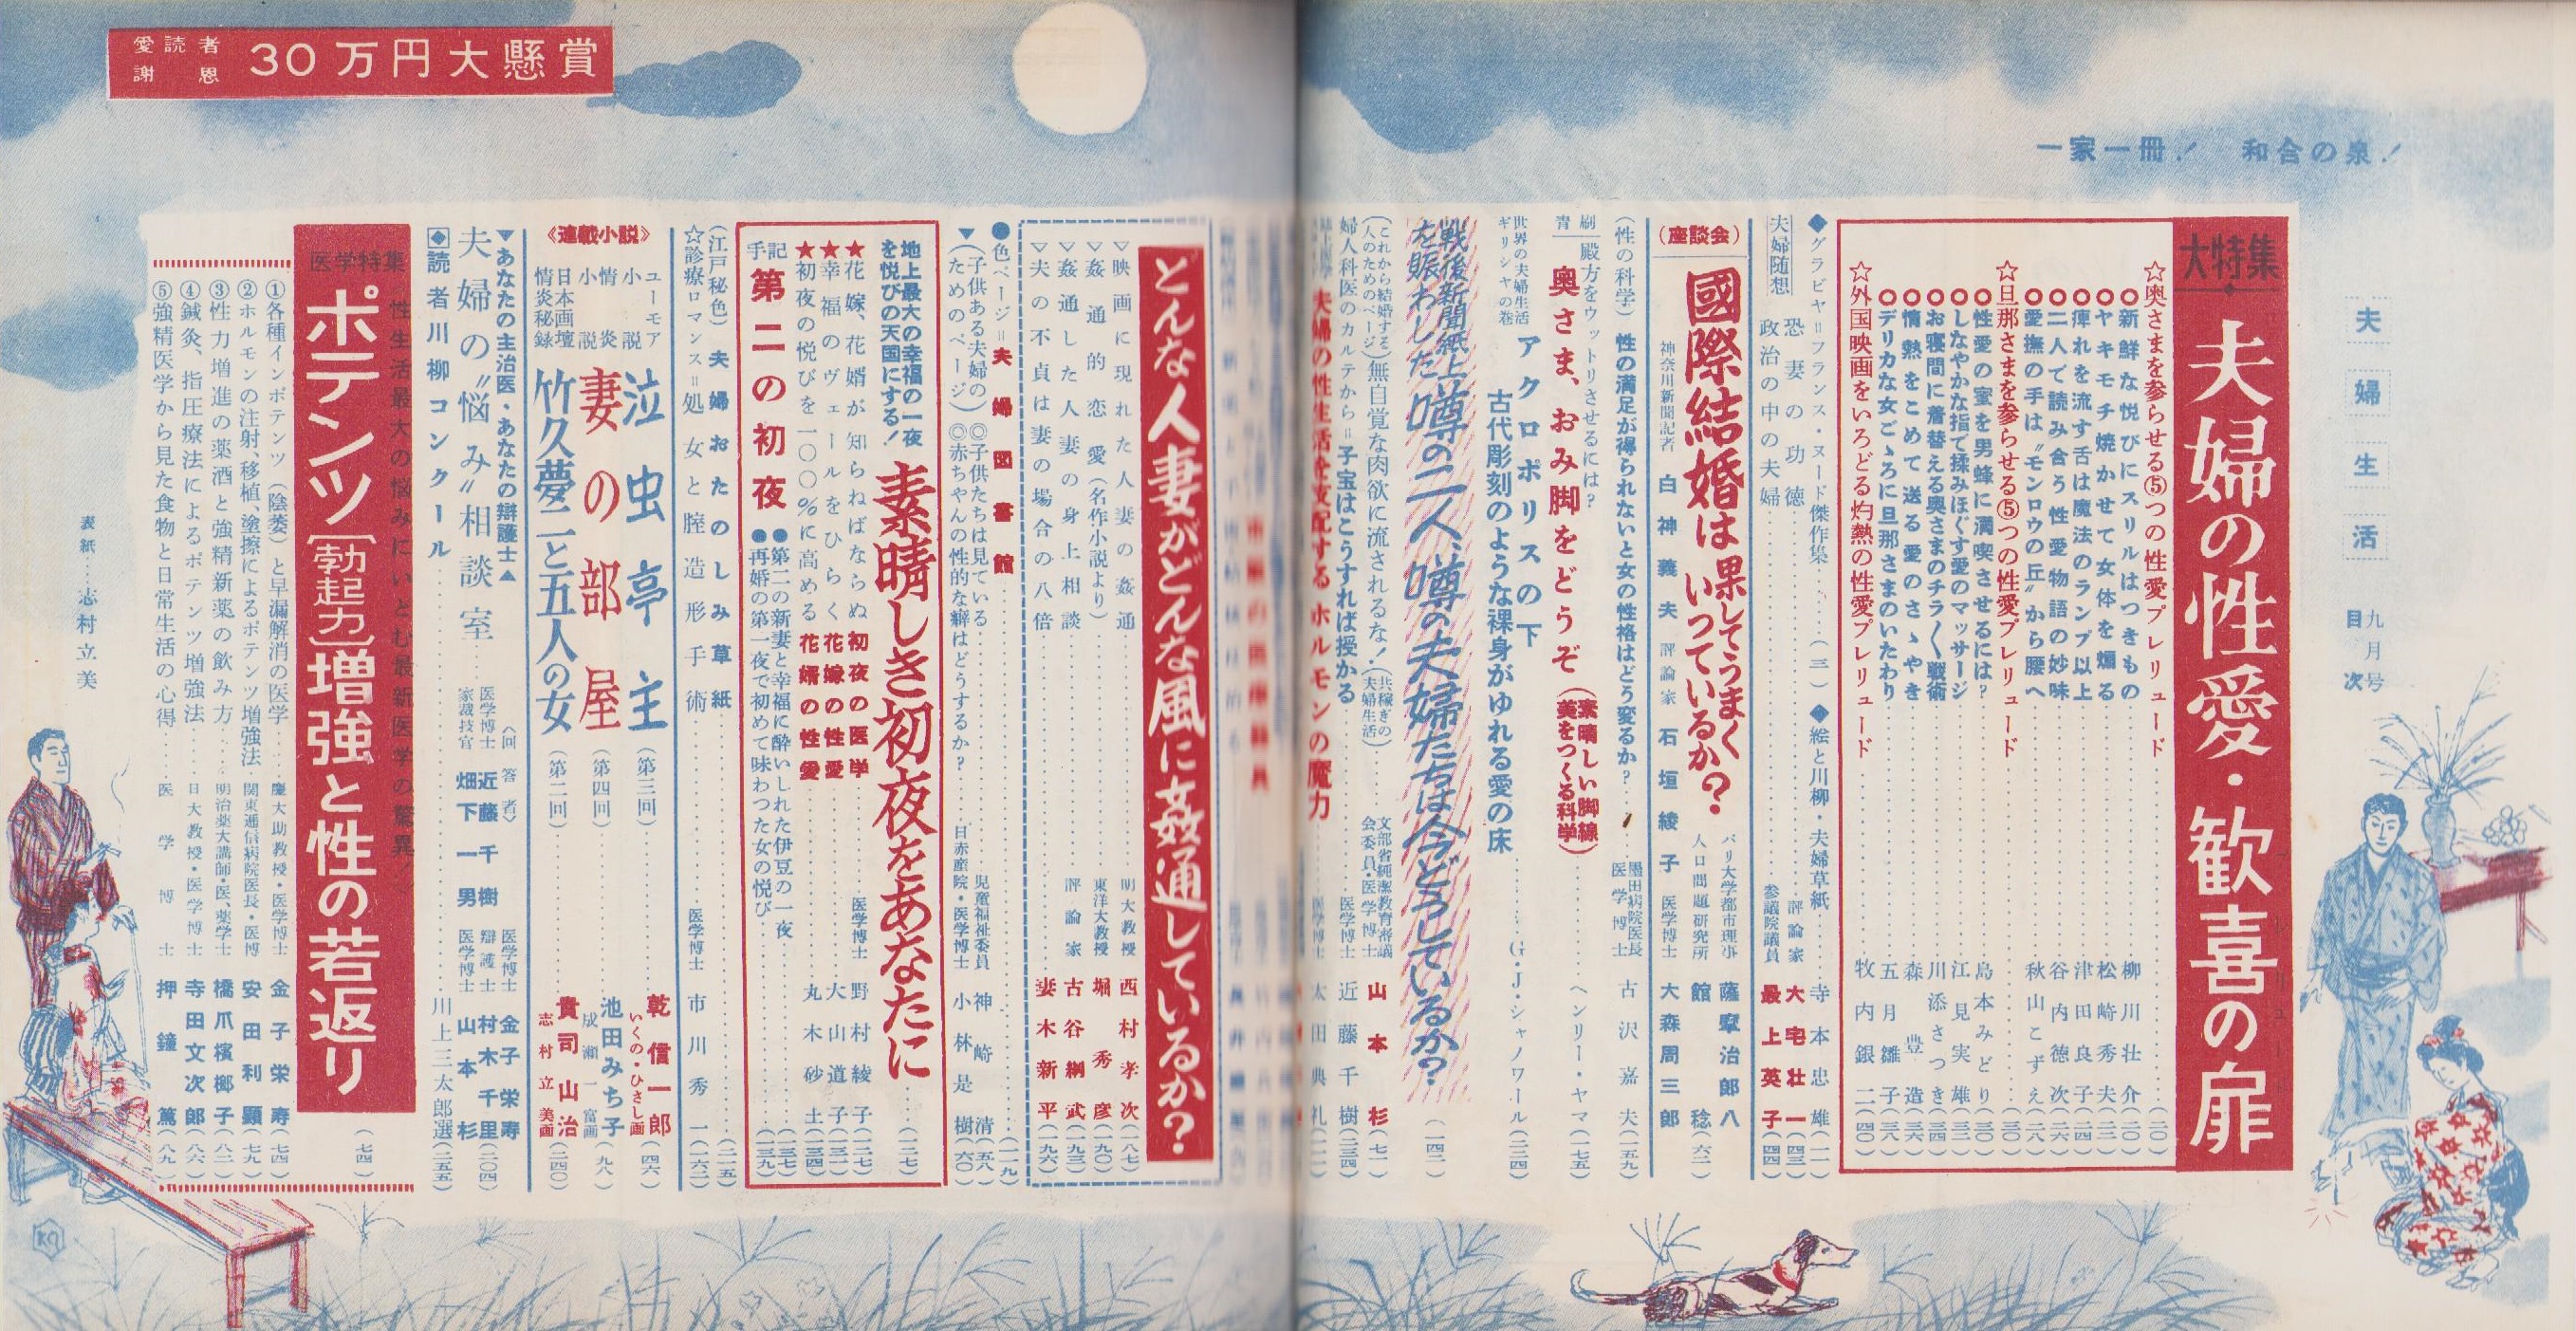 一家一冊！ 和合の泉！
夫婦生活
九月号
目次
大特集
夫婦の性愛・歓喜の扉
☆奥さまを参らせる⑤つの性愛プレリュード (二〇)
●新鮮な悦びにスリルはつきもの 柳川壮介 (二〇)
●ヤキモチ焼かせて女体を煽る 松崎秀夫 (二二)
●痺れを流す舌は魔法のランプ以上 津田良子 (二四)
●二人で読み合う性愛物語の妙味 谷内徳次 (二六)
●愛撫の手は〝モンロウの丘〟から腰へ 秋山こずえ (二八)
☆旦那さまを参らせる⑤つの性愛プレリュード (三〇)
●性愛の蜜を男蜂に満喫させるには? 島本みどり (三〇)
●しなやかな指で揉みほぐす愛のマッサージ 江見実雄 (三二)
●お寝間に着替える奥さまのチラ〱戦術 川添さつき (三四)
●情熱をこめて送る愛のさゝやき 森豊造 (三六)
●デリカな女ごゝろに旦那さまのいたわり 五月雛子 (三八)
☆外国映画をいろどる灼熱の性愛プレリュード 牧内銀二 (四〇)
◆グラビヤ＝フランス・ヌード傑作集 (三) ◆絵と川柳・夫婦草紙 寺本忠雄 (一一)
夫婦随想
恐妻の功徳 評論家 大宅壮一 (四三)
政治の中の夫婦 参議院議員 最上英子 (四四)
(座談会)
國際結婚は果してうまくいつているか?
パリ大学都市理事 薩摩治郎八
人口問題研究所 館稔 (六二)
神奈川新聞記者 白神義夫 評論家 石垣綾子 医学博士 大森周三郎
(性の科学) 性の満足が得られないと女の性格はどう変るか? 墨田病院医長 医学博士 古沢嘉夫 (一五九)
青刷
殿方をウットリさせるには?
奥さま、おみ脚をどうぞ (素晴しい脚線美をつくる科学) ヘンリー・ヤマ (一七五)
世界の夫婦生活
ギリシヤの巻
アクロポリスの下
古代彫刻のような裸身がゆれる愛の床 G・J・シャノワール (三四)
戦後新聞紙上を賑わした
噂の二人、噂の夫婦たちは今どうしているか? (一四二)
(これから結婚する人のためのページ) 無自覚な肉欲に流されるな！ (共稼ぎの夫婦生活) 文部省純潔教育審議会委員・医学博士 山本杉 (七一)
婦人科医のカルテから＝子宝はこうすれば授かる 医学博士 近藤千樹
夫婦の性生活を支配するホルモンの魔力 医学博士 太田典礼
愛読者謝恩 30万円大懸賞
どんな人妻がどんな風に姦通しているか?
▽映画に現れた人妻の姦通 明大教授 西村孝次 (一八七)
▽姦通的恋愛(名作小説より) 東洋大教授 堀秀彦 (一九〇)
▽姦通した人妻の身上相談 評論家 古谷綱武 (一九三)
▽夫の不貞は妻の場合の八倍 妻木新平 (一九六)
●色ページ＝夫婦図書館 (一一九)
▼(子供ある夫婦のためのページ) ◎子供たちは見ている 児童福祉委員 神崎清 (五八)
◎赤ちゃんの性的な癖はどうするか? 日赤産院・医学博士 小林是樹 (六〇)
地上最大の幸福の一夜を悦びの天国にする！
素晴しき初夜をあなたに (一二七)
★花嫁、花婿が知らねばならぬ初夜の医学 医学博士 野村綾子 (一二七)
★幸福のヴェールをひらく花嫁の性愛 大山道子 (一三一)
★初夜の悦びを一〇〇％に高める花婿の性愛 丸木砂土 (一三四)
手記 第二の初夜
●第二の新妻と幸福に酔いしれた伊豆の一夜 (一三七)
●再婚の第一夜で初めて味わつた女の悦び (一三九)
(江戸秘色) 夫婦おたのしみ草紙 (二一五)
☆診療ロマンス＝処女と腟造形手術 医学博士 市川秀一 (一六二)
《連載小説》
ユーモア小説 泣虫亭主 (第三回) 乾信一郎 いくの・ひさし画 (四六)
情炎小説 妻の部屋 (第四回) 池田みち子 成瀬一富画 (九八)
日本画壇情炎秘録 竹久夢二と五人の女 (第二回) 貴司山治 志村立美画 (二四〇)
▼あなたの主治医・あなたの弁護士▲
夫婦の〝悩み〟相談室
(回答者) 医学博士 近藤千樹 家裁技官 畑下一男 医学博士 金子栄寿 弁護士 村木千里 医学博士 山本杉 (二〇四)
◆読者川柳コンクール 川上三太郎選 (二五五)
医学特集
性生活最大の悩みにいどむ最新医学の驚異！
ポテンツ〔勃起力〕増強と性の若返り (七四)
①各種インポテンツ(陰萎)と早漏解消の医学 慶大助教授・医学博士 金子栄寿 (七四)
②ホルモンの注射、移植、塗擦によるポテンツ増強法 関東逓信病院医長・医博 安田利顕 (七九)
③性力増進の薬酒と強精新薬の飲み方 明治薬大講師・医、薬学士 橋爪檳榔子 (八二)
④鍼灸、指圧療法によるポテンツ増強法 日大教授・医学博士 寺田文次郎 (八六)
⑤強精医学から見た食物と日常生活の心得 医学博士 押鐘篤 (八九)
表紙…志村立美